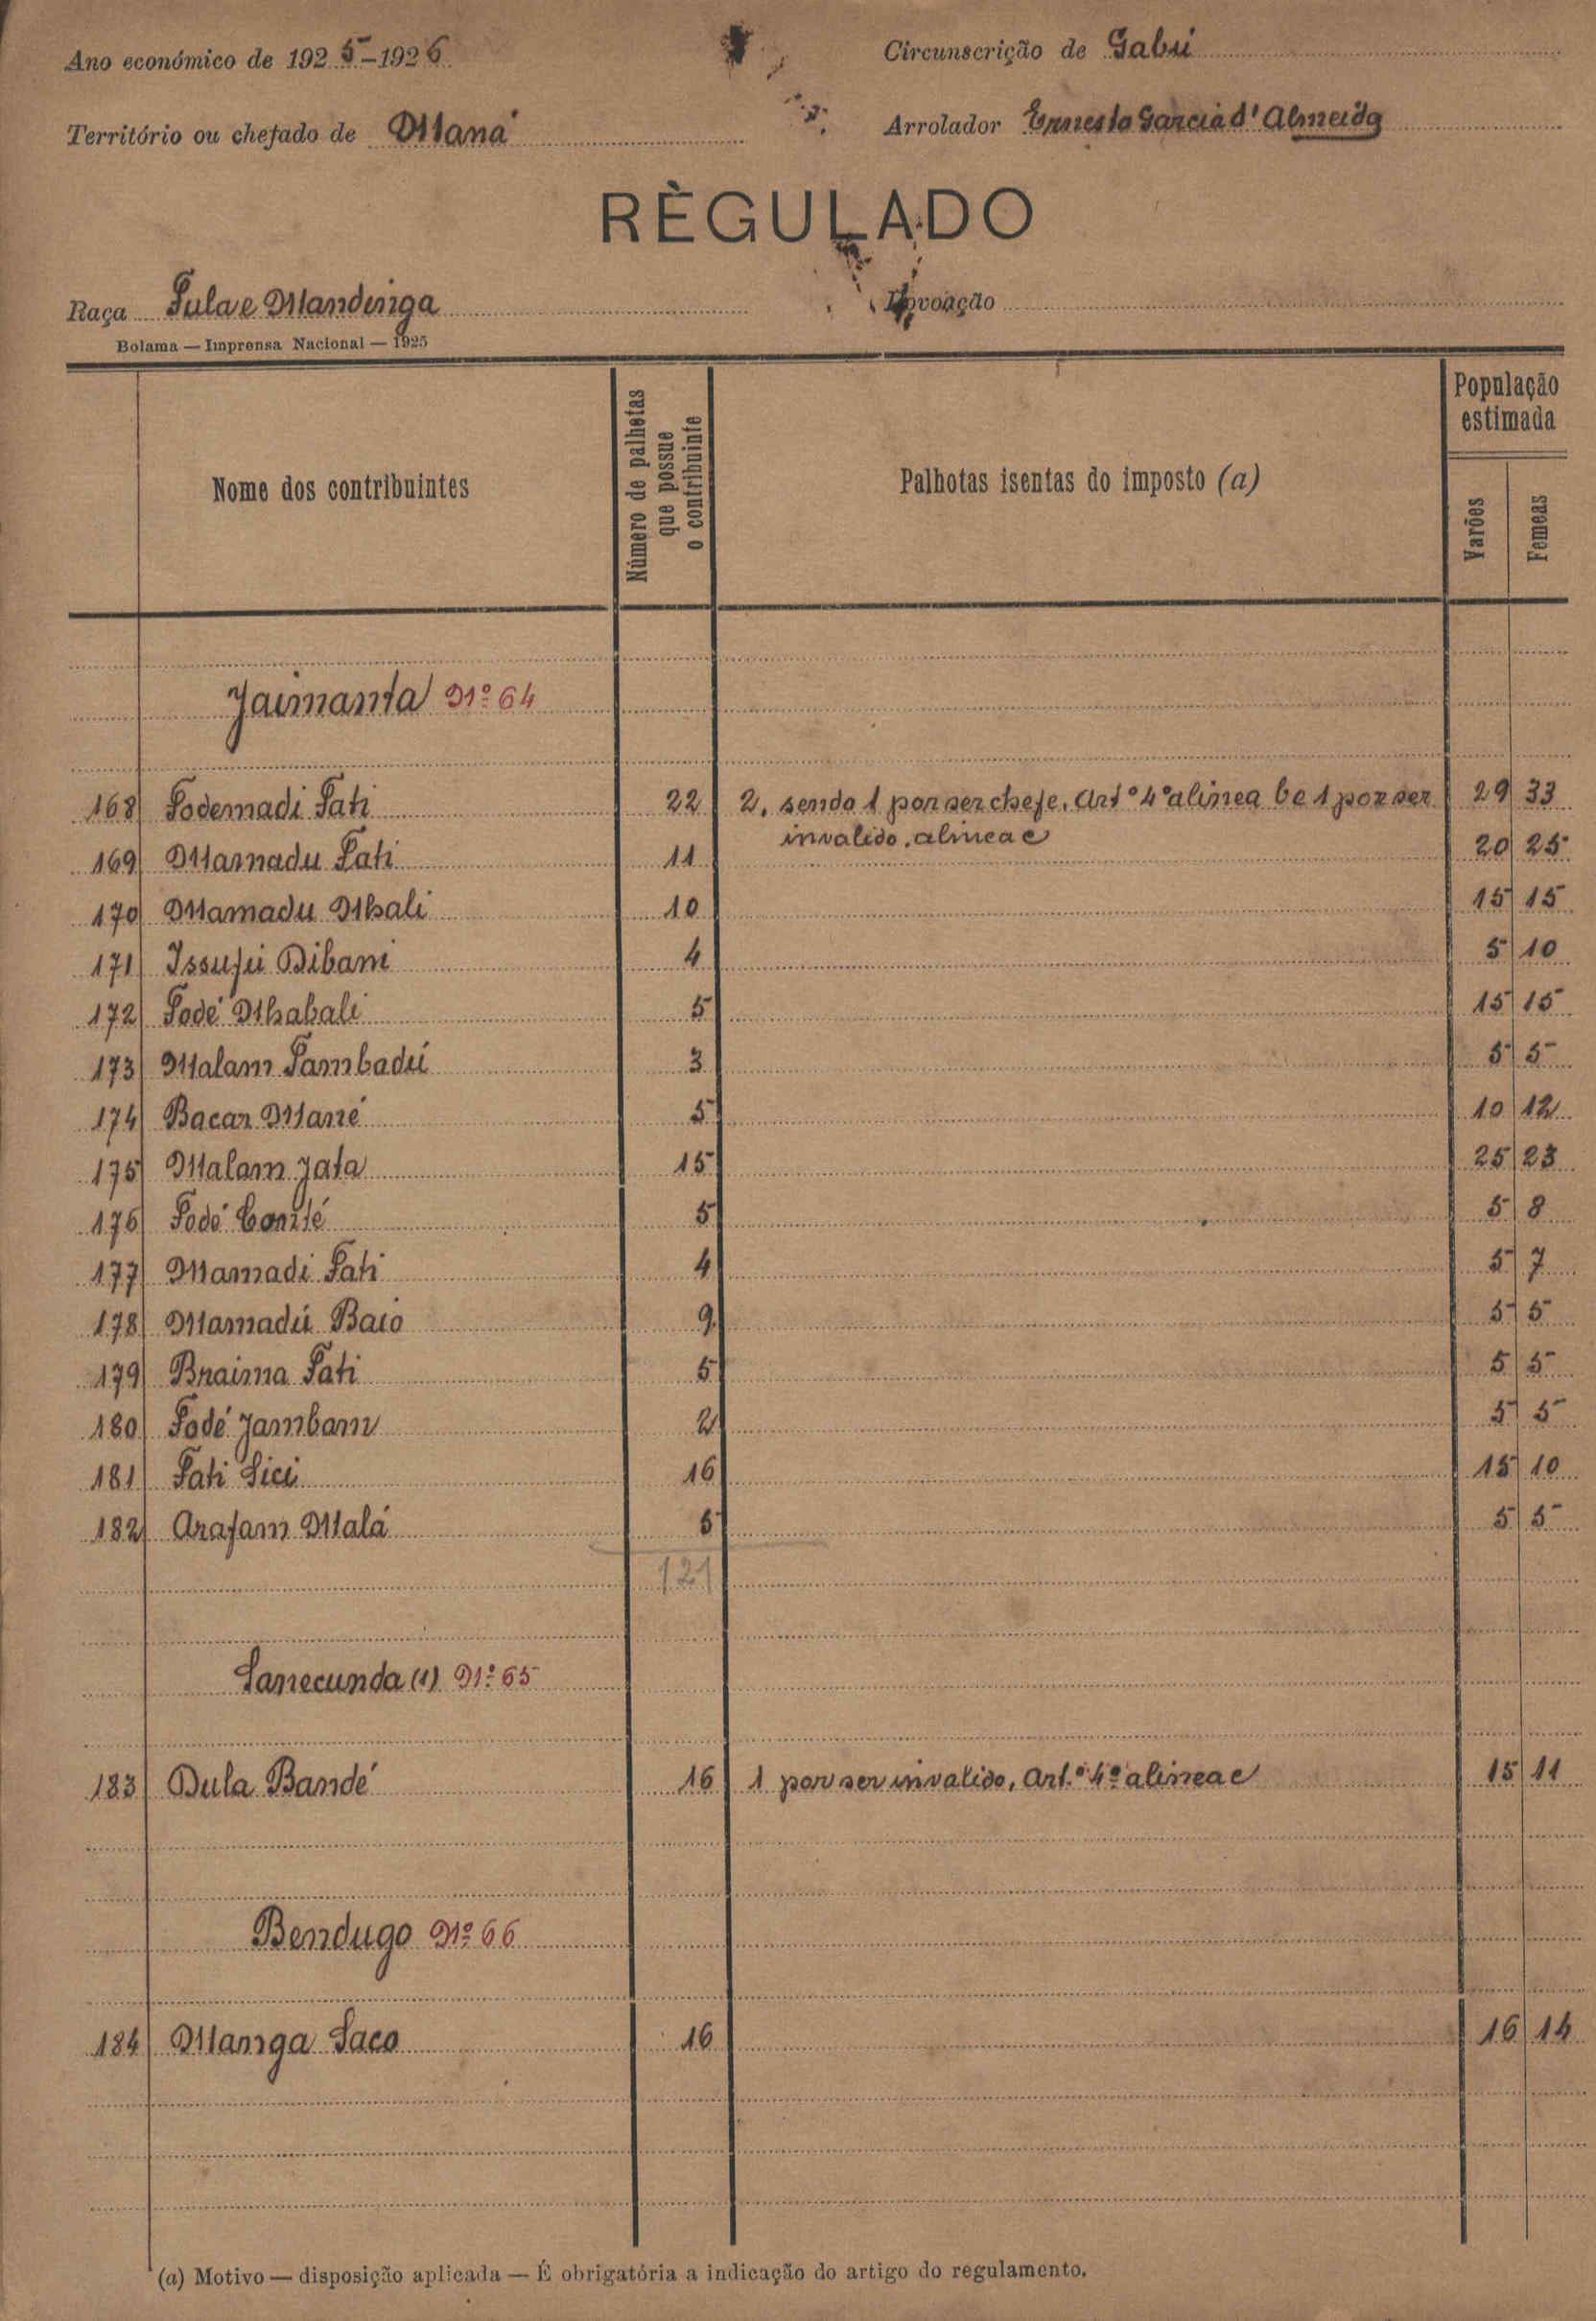 Ano económico de 1925-1926
Circunscrição de Gabú
Território ou chefado de Maná
Arrolador Ernesto Garcia d'Almeida
RÈGULADO
Raça Fula e Mandinga
Povoação
Bolama — Imprensa Nacional — 1925
Nome dos contribuintes
Número de palhotas que possue o contribuinte
Palhotas isentas do imposto (a)
População estimada
Varões
Femeas
Jaimanta Nº 64
168 Fodemadi Fati 22 2, sendo 1 por ser chefe, Artº 4º alinea b e 1 por ser 29 33
invalido, alinea c
169 Mamadu Fati 11 20 25
170 Mamadu Mbali 10 15 15
171 Issufu Dibani 4 5 10
172 Fodé Mbabali 5 15 15
173 Malam Fambadú 3 5 5
174 Bacar Mané 5 10 12
175 Malam Jata 15 25 23
176 Fodé Conté 5 5 8
177 Mamadi Fati 4 5 7
178 Mamadú Baio 9 5 5
179 Braima Fati 5 5 5
180 Fodé Jambam 2 5 5
181 Fati Sici 16 15 10
182 Arafam Malá 5 5 5
121
Sanecunda (1) Nº 65
183 Dula Bandé 16 1 por ser invalido, Art.º 4º alinea c 15 11
Bendugo Nº 66
184 Manga Saco 16 16 14
(a) Motivo — disposição aplicada — É obrigatória a indicação do artigo do regulamento.